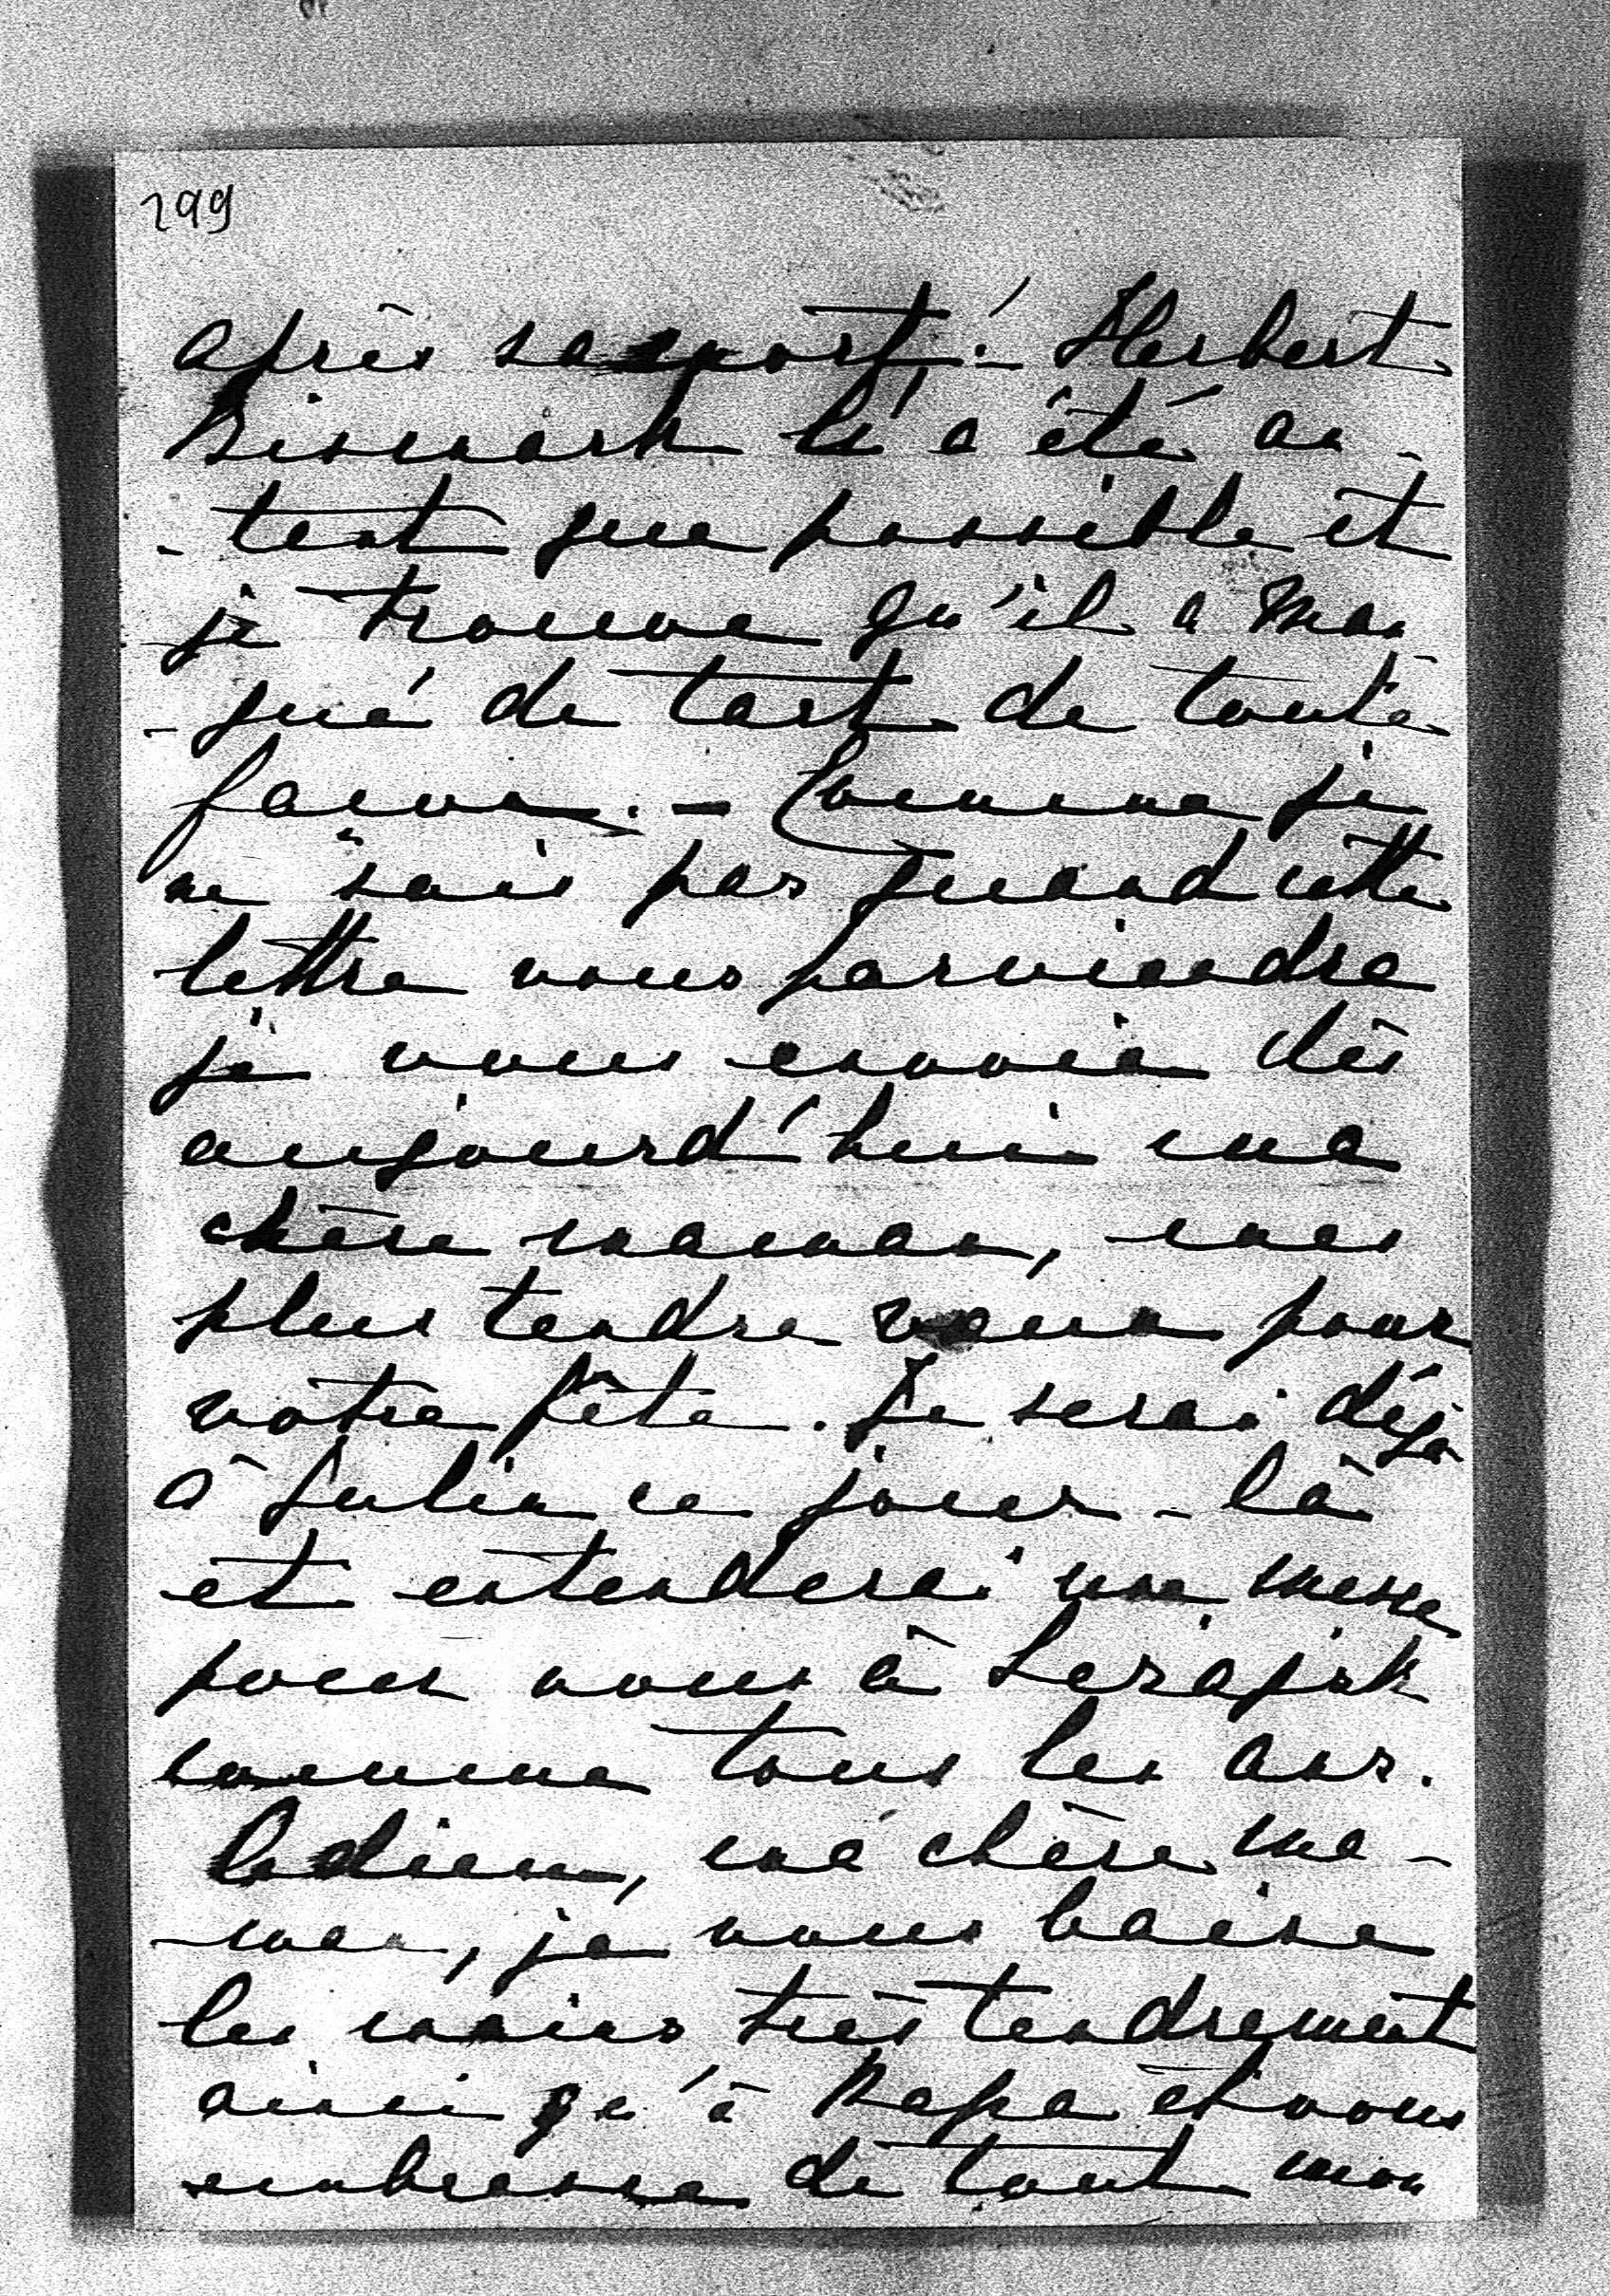 299
après sa mort. – Herbert
Bismark l'a été au-
-tant que possible et
je trouve qu'il a man
-qué de tact de toute
facon. – Comme je
ne sais pas quand cette
lettre vous parviendra
je vous envoie dès
aujourd'hui ma
chère maman, mes
plus tendre vœux pour
votre fête. Je serai déjà
à Lublin ce jour-là
et entenderai une messe
pour vous à
comme tous les ans.
Adieu, ma chère ma-
-man, je vous baise
les mains très tendrement
ainsi qu'à Papa et vous
embrasse de tout mon